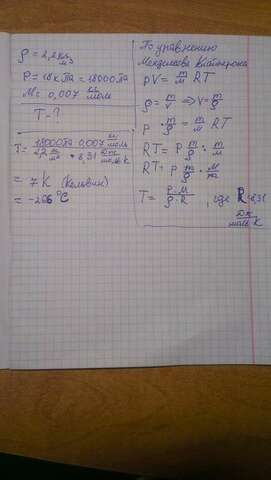 ρ = 2,2 кг/м³
P = 18 кПа = 18000 Па
M = 0,007 кг/моль
T - ?
T = 18000 Па · 0,007 кг/моль / 2,2 кг/м³ · 8,31 Дж/моль·К
= 7 К (Кельвин)
= -266 °C
По уравнению
Менделеева Клапейрона
pV = m/M RT
ρ = m/V => V = m/ρ
P · m/ρ = m/M RT
RT = P m/ρ · m/M
RT = P m/ρ · M/m
T = P·M/ρ·R , где R=8,31
Дж/моль·К